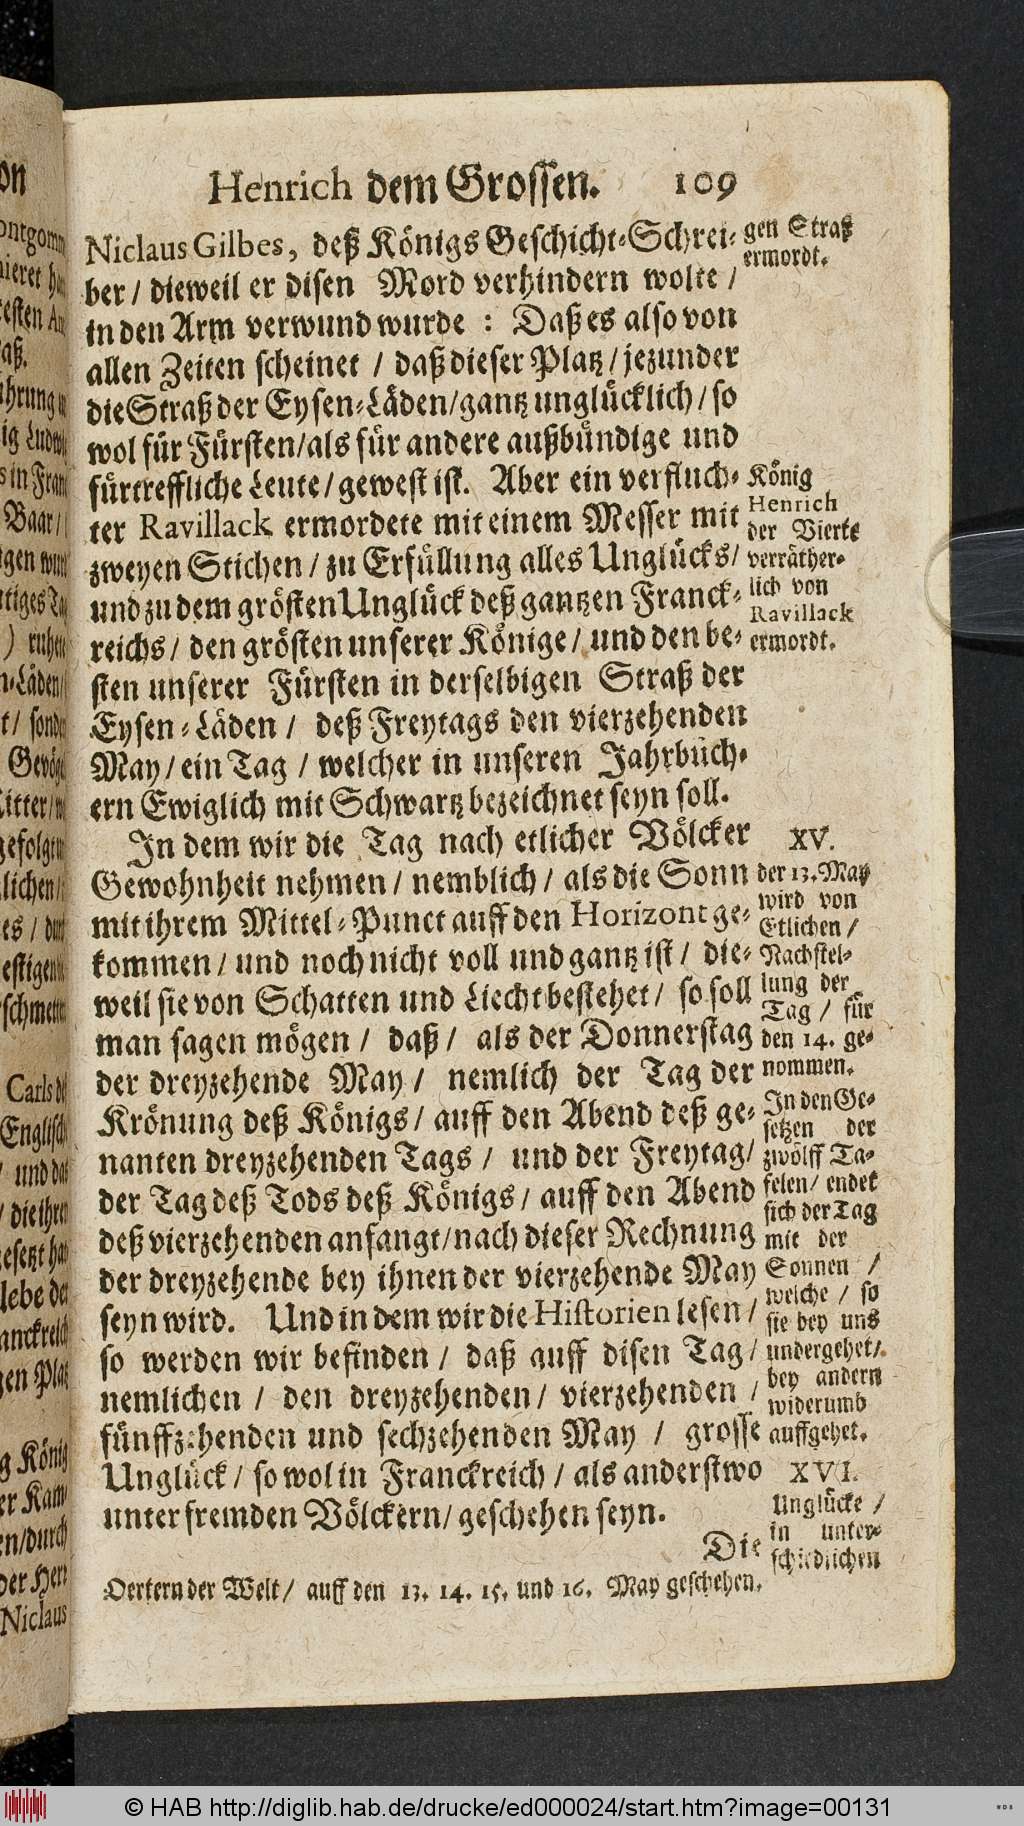 Henrich dem Grossen. 109
Niclaus Gilbes, deß Königs Geschicht-Schrei-
ber / dieweil er disen Mord verhindern wolte /
in den Arm verwund wurde : Daß es also von
allen Zeiten scheinet / daß dieser Platz / jezunder
die Straß der Eysen-Läden / gantz unglücklich / so
wol für Fürsten / als für andere außbündige und
fürtreffliche Leute / gewest ist. Aber ein verfluch-
ter Ravillack ermordete mit einem Messer mit
zweyen Stichen / zu Erfüllung alles Unglücks /
und zu dem grösten Unglück deß gantzen Franck-
reichs / den grösten unserer Könige / und den be-
sten unserer Fürsten in derselbigen Straß der
Eysen-Läden / deß Freytags den vierzehenden
May / ein Tag / welcher in unseren Jahrbüch-
ern Ewiglich mit Schwartz bezeichnet seyn soll.
In dem wir die Tag nach etlicher Völcker
Gewohnheit nehmen / nemblich / als die Sonn
mit ihrem Mittel-Punct auff den Horizont ge-
kommen / und noch nicht voll und gantz ist / die-
weil sie von Schatten und Liecht bestehet / so soll
man sagen mögen / daß / als der Donnerstag
der dreyzehende May / nemlich der Tag der
Krönung deß Königs / auff den Abend deß ge-
nanten dreyzehenden Tags / und der Freytag /
der Tag deß Tods deß Königs / auff den Abend
deß vierzehenden anfangt / nach dieser Rechnung
der dreyzehende bey ihnen der vierzehende May
seyn wird. Und in dem wir die Historien lesen /
so werden wir befinden / daß auff disen Tag /
nemlichen / den dreyzehenden / vierzehenden /
fünffzehenden und sechzehenden May / grosse
Unglück / so wol in Franckreich / als anderstwo
unter fremden Völckern / geschehen seyn.
Die
gen Straß
ermordt.
König
Henrich
der Vierte
verräther-
lich von
Ravillack
ermordt.
XV.
der 13. May
wird von
Etlichen /
Nachstel-
lung der
Tag / für
den 14. ge-
nommen.
In den Ge-
setzen der
zwölff Ta-
felen / endet
sich der Tag
mit der
Sonnen /
welche / so
sie bey uns
undergehet /
bey andern
widerumb
auffgehet.
XVI.
Unglücke /
in unter-
schiedlichen
Oertern der Welt / auff den 13. 14. 15. und 16. May geschehen.
on
ruhe
Gevög
Carls de
Englisch
und da
Niclaus
© HAB http://diglib.hab.de/drucke/ed000024/start.htm?image=00131